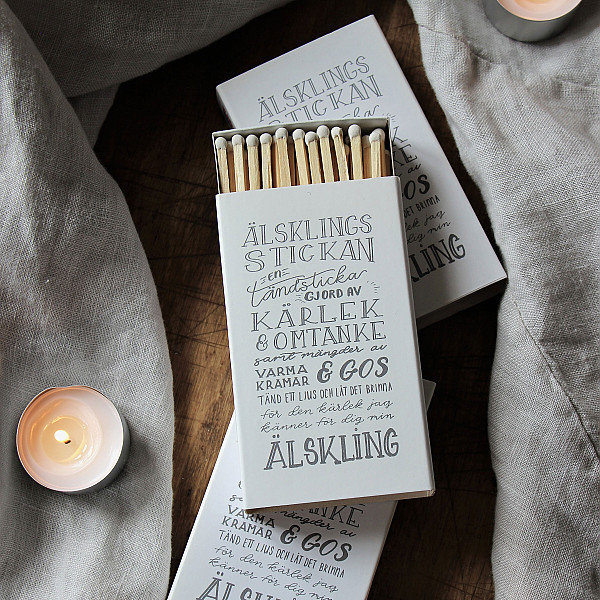 ÄLSKLINGS
STICKAN
en
tändsticka
GJORD AV
KÄRLEK
& OMTANKE
samt mängder av
VARMA
KRAMAR & GOS
TÄND ETT LJUS OCH LÅT DET BRINNA
för den kärlek jag
känner för dig min
ÄLSKLING
ÄLSKLINGS
STICKAN
tändsticka
NKE
av
GOS
DET BRINNA
kärlek jag
dig min
KLING
OMTANKE
samt mängder av
VARMA
KRAMAR & GOS
TÄND ETT LJUS OCH LÅT DET BRINNA
för den kärlek jag
känner för dig min
ÄLSKLING